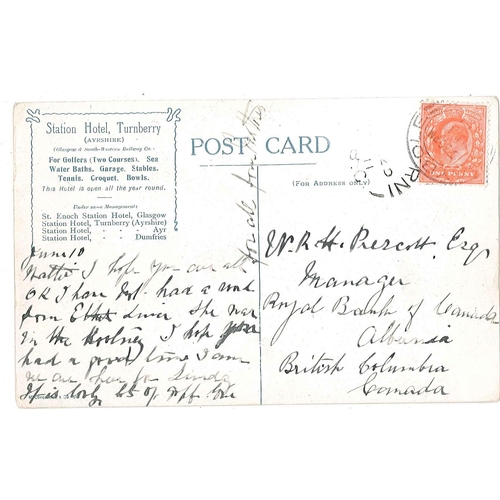 Station Hotel, Turnberry
(AYRSHIRE)
(Glasgow & South-Western Railway Co.)
For Golfers (Two Courses). Sea
Water Baths. Garage. Stables.
Tennis. Croquet. Bowls.
This Hotel is open all the year round.
Under same Management:
St. Enoch Station Hotel, Glasgow
Station Hotel, Turnberry (Ayrshire)
Station Hotel, " " Ayr
Station Hotel, " " Dumfries
POST CARD
(FOR ADDRESS ONLY)
ONE PENNY
June 10
I hope you are all
OK I have not had a word
from since she was
in the I hope you
had a good time
we are here for Sunday
It is only 65
W.R.H. Prescott Esq.
Manager
Royal Bank of Canada
British Columbia
Canada